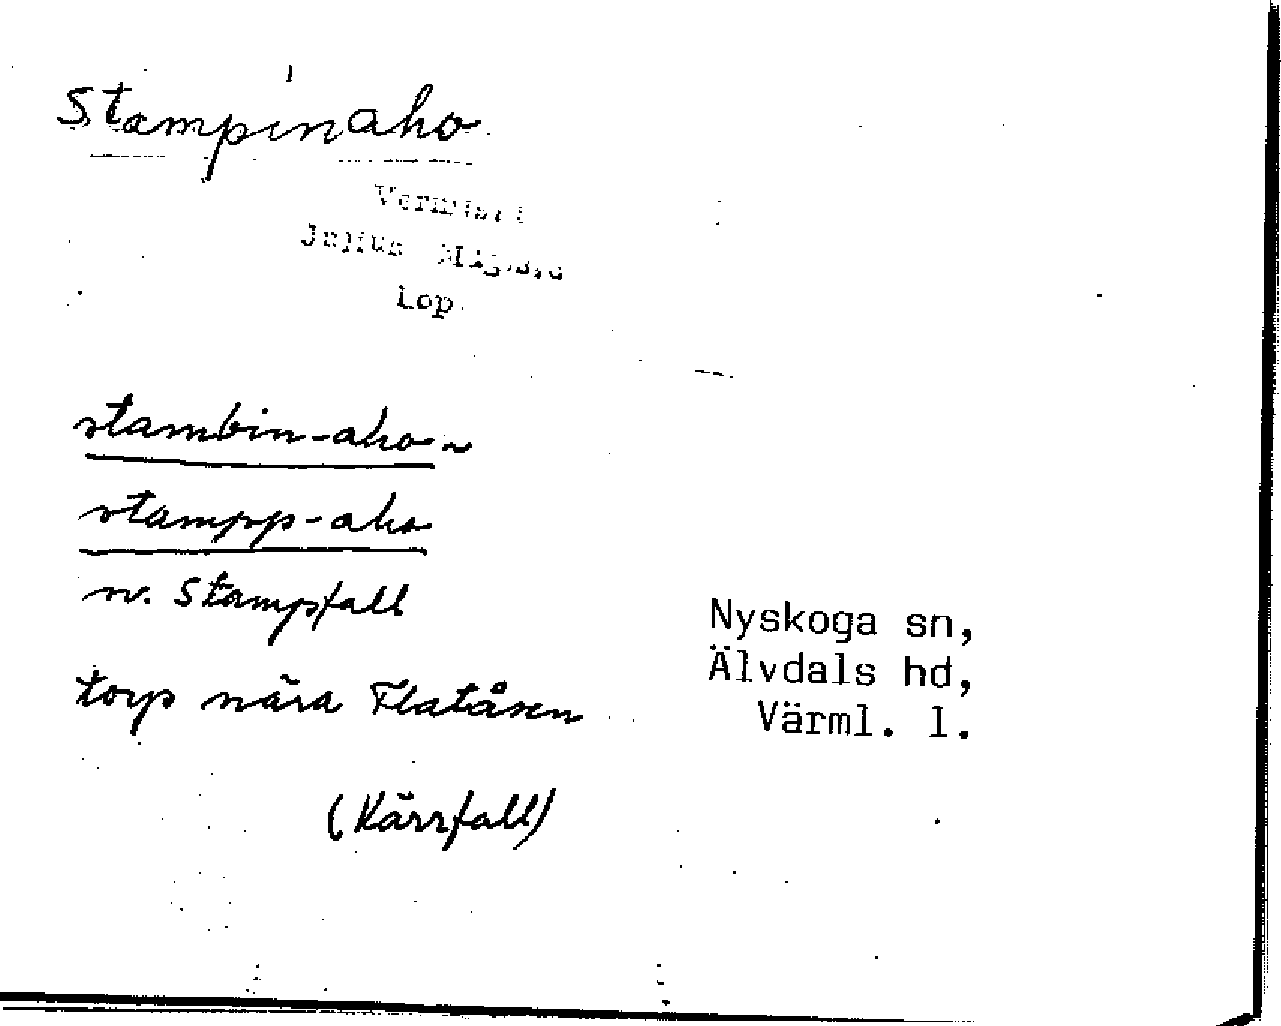 Stampinaho
Julius
Lop
stambin-aho ~
stampp-aho
nv. Stampfall
torp nära Flatåsen
(Kärrfall)
Nyskoga sn,
Älvdals hd,
Värml. l.